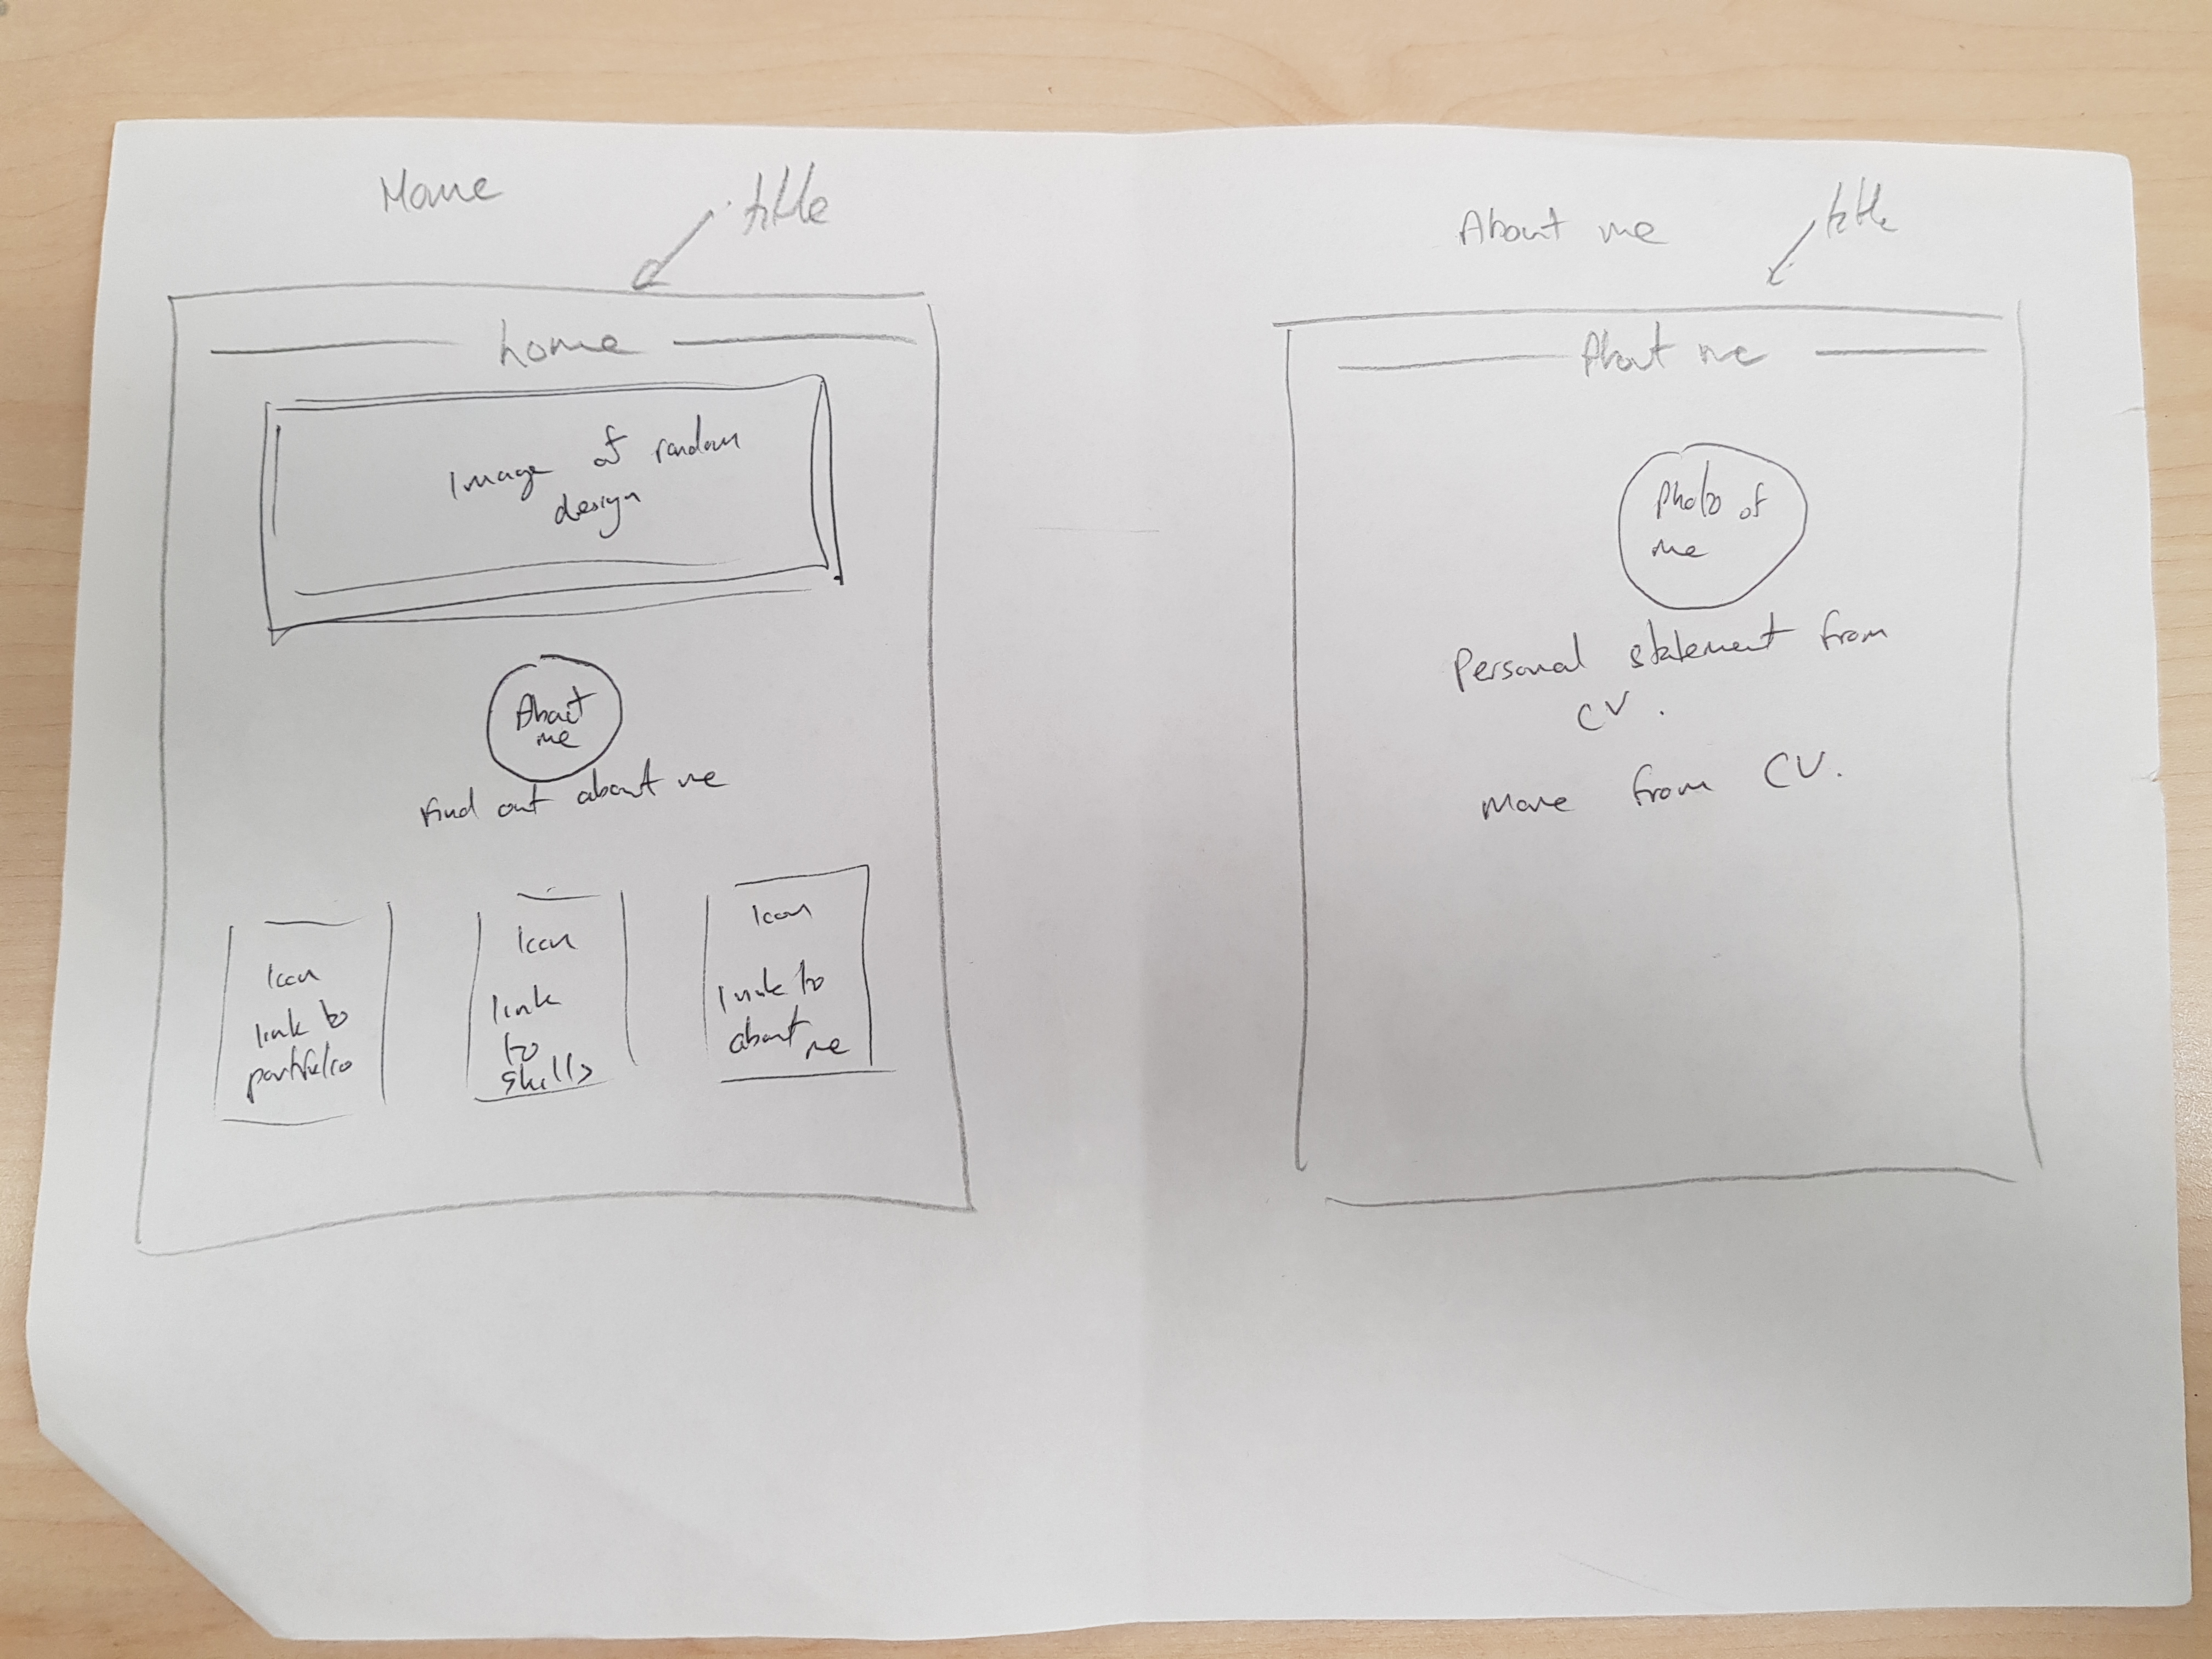 Home
title
home
Image of random
design
About
me
find out about me
Icon
link to
portfolio
Icon
link
to
skills
Icon
link to
about me
About me
title
About me
Photo of
me
Personal statement from
CV.
More from CV.